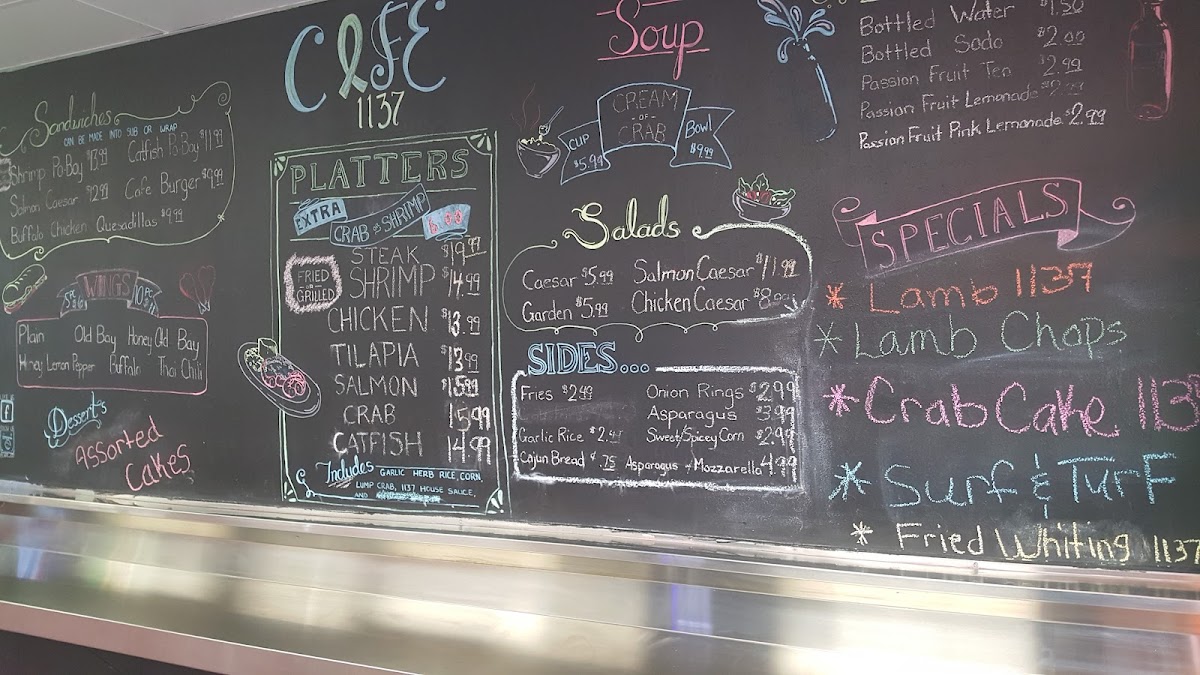 CAFE
1137
Sandwiches
CAN BE MADE INTO SUB OR WRAP
Shrimp Po-Bay $13.99 Catfish Po-Bay $11.99
Salmon Caesar Cafe Burger $9.99
Buffalo Chicken Quesadillas $9.99
WINGS
5PC 10PC
Plain Old Bay Honey Old Bay
Honey Lemon Pepper Buffalo Thai Chili
Desserts
Assorted
Cakes
PLATTERS
EXTRA
CRAB & SHRIMP
STEAK $19.99
FRIED
GRILLED
SHRIMP $14.99
CHICKEN $13.99
TILAPIA $13.99
SALMON $15.99
CRAB 15.99
CATFISH 14.99
Includes GARLIC HERB RICE, CORN,
LUMP CRAB, 1137 HOUSE SAUCE,
AND
Soup
CREAM
-OF-
CRAB
CUP
$5.99
Bowl
$9.99
Salads
Caesar $5.99 Salmon Caesar $11.99
Garden $5.99 Chicken Caesar
SIDES...
Fries $2.49 Onion Rings $2.99
Asparagus $3.99
Garlic Rice Sweet/Spicey Corn $2.99
Cajun Bread .75 Asparagus w/ Mozzarella 4.99
Bottled Water $1.50
Bottled Soda $2.00
Passion Fruit Tea $2.99
Passion Fruit Lemonade $2.99
Passion Fruit Pink Lemonade $2.99
SPECIALS
* Lamb 1137
* Lamb Chops
* Crab Cake
* Surf & Turf
* Fried Whiting 1137